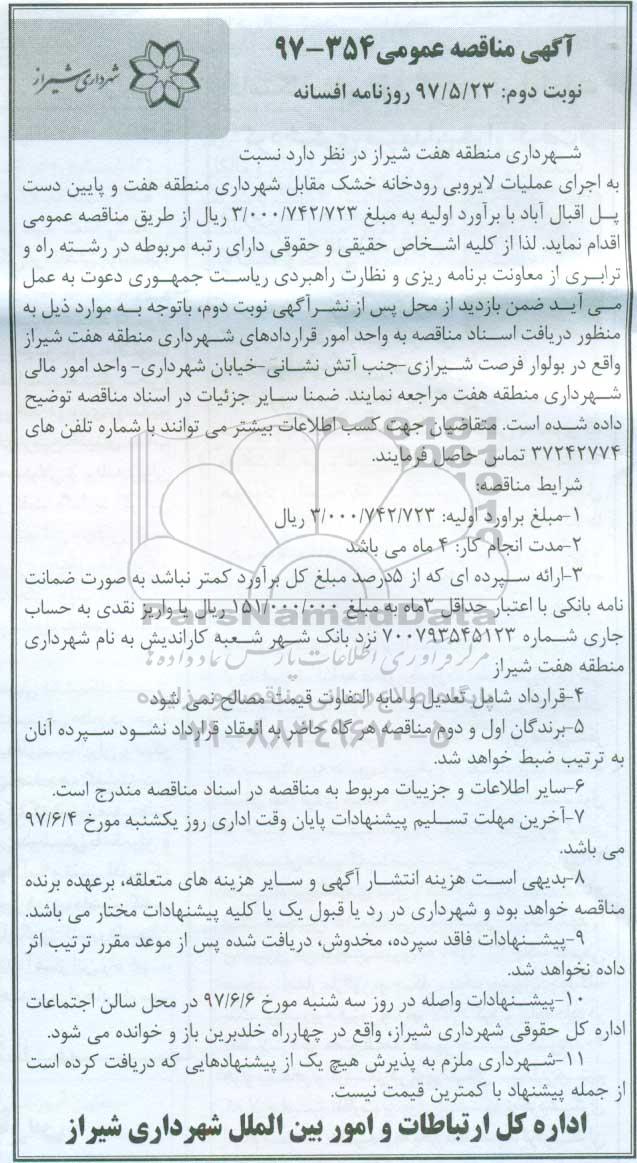 آگهی مناقصه عمومی ۳۵۴-۹۷
نوبت دوم: ۹۷/۵/۲۳ روزنامه افسانه
شهرداری شیراز
شهرداری منطقه هفت شیراز در نظر دارد نسبت
به اجرای عملیات لایروبی رودخانه خشک مقابل شهرداری منطقه هفت و پایین دست
پل اقبال آباد با برآورد اولیه به مبلغ ۳/۰۰۰/۷۴۲/۷۲۳ ریال از طریق مناقصه عمومی
اقدام نماید. لذا از کلیه اشخاص حقیقی و حقوقی دارای رتبه مربوطه در رشته راه و
ترابری از معاونت برنامه ریزی و نظارت راهبردی ریاست جمهوری دعوت به عمل
می آید ضمن بازدید از محل پس از نشرآگهی نوبت دوم، باتوجه به موارد ذیل به
منظور دریافت اسناد مناقصه به واحد امور قراردادهای شهرداری منطقه هفت شیراز
واقع در بولوار فرصت شیرازی-جنب آتش نشانی-خیابان شهرداری- واحد امور مالی
شهرداری منطقه هفت مراجعه نمایند. ضمنا سایر جزئیات در اسناد مناقصه توضیح
داده شده است. متقاضیان جهت کسب اطلاعات بیشتر می توانند با شماره تلفن های
۳۷۲۴۲۷۷۴ تماس حاصل فرمایند.
شرایط مناقصه:
۱-مبلغ براورد اولیه: ۳/۰۰۰/۷۴۲/۷۲۳ ریال
۲-مدت انجام کار: ۴ ماه می باشد
۳-ارائه سپرده ای که از ۵درصد مبلغ کل برآورد کمتر نباشد به صورت ضمانت
نامه بانکی با اعتبار حداقل ۳ماه به مبلغ ۱۵۱/۰۰۰/۰۰۰ ریال یا واریز نقدی به حساب
جاری شماره ۷۰۰۷۹۳۵۴۵۱۲۳ نزد بانک شهر شعبه کاراندیش به نام شهرداری
منطقه هفت شیراز
۴-قرارداد شامل تعدیل و مابه التفاوت قیمت مصالح نمی شود
۵-برندگان اول و دوم مناقصه هرگاه حاضر به انعقاد قرارداد نشود سپرده آنان
به ترتیب ضبط خواهد شد.
۶-سایر اطلاعات و جزییات مربوط به مناقصه در اسناد مناقصه مندرج است.
۷-آخرین مهلت تسلیم پیشنهادات پایان وقت اداری روز یکشنبه مورخ ۹۷/۶/۴
می باشد.
۸-بدیهی است هزینه انتشار آگهی و سایر هزینه های متعلقه، برعهده برنده
مناقصه خواهد بود و شهرداری در رد یا قبول یک یا کلیه پیشنهادات مختار می باشد.
۹-پیشنهادات فاقد سپرده، مخدوش، دریافت شده پس از موعد مقرر ترتیب اثر
داده نخواهد شد.
۱۰-پیشنهادات واصله در روز سه شنبه مورخ ۹۷/۶/۶ در محل سالن اجتماعات
اداره کل حقوقی شهرداری شیراز، واقع در چهارراه خلدبرین باز و خوانده می شود.
۱۱-شهرداری ملزم به پذیرش هیچ یک از پیشنهادهایی که دریافت کرده است
از جمله پیشنهاد با کمترین قیمت نیست.
اداره کل ارتباطات و امور بین الملل شهرداری شیراز
ParsNamadData
مرکز فرآوری اطلاعات پارس نماد داده ها
۰۲۱-۸۸۳۴۹۶۷۰-۵